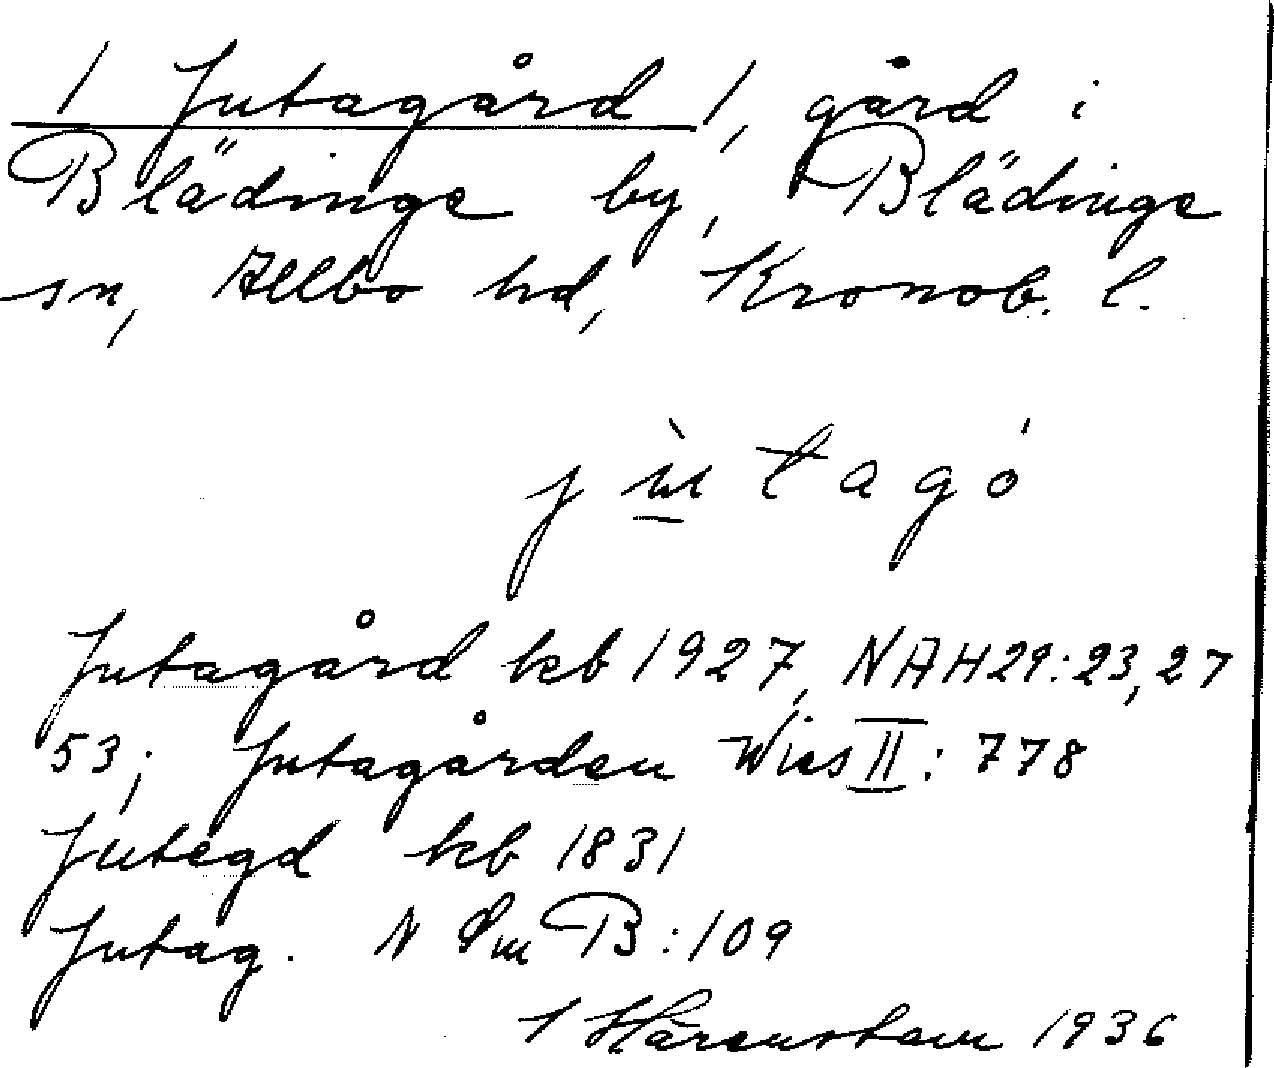 / Jutagård /, gård i
Blädinge by, Blädinge
sn, Allbo hd, Kronob. l.
jùtagó
Jutagård kb 1927, NAH29:23,27
53; Jutagården Wies II: 778
Jutegd kb 1831
Jutag. N Sm B:109
Härenstam 1936